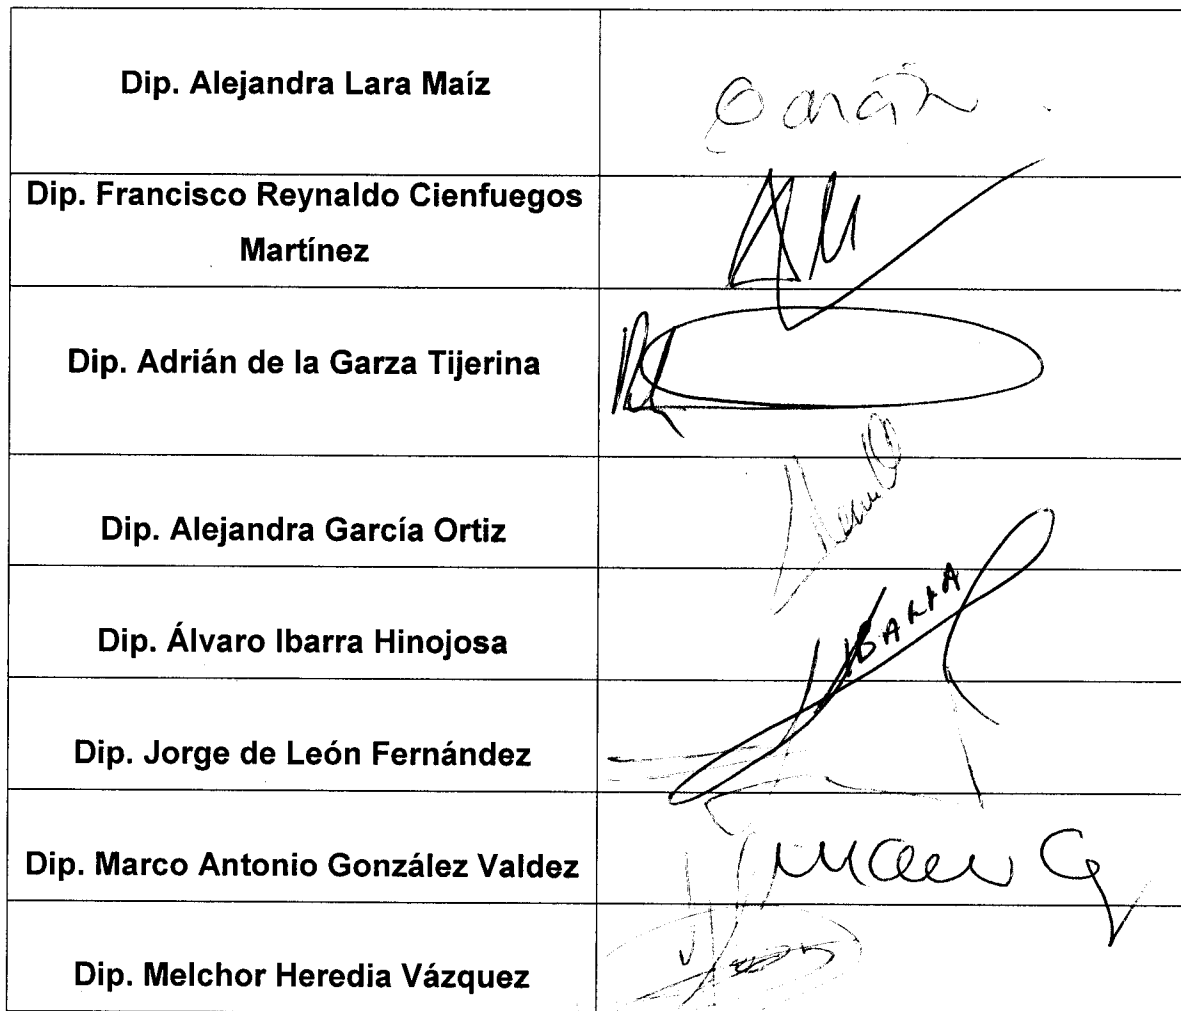 Dip. Alejandra Lara Maíz
Dip. Francisco Reynaldo Cienfuegos
Martínez
Dip. Adrián de la Garza Tijerina
Dip. Alejandra García Ortiz
IBARRA
Dip. Álvaro Ibarra Hinojosa
Dip. Jorge de León Fernández
Dip. Marco Antonio González Valdez
Dip. Melchor Heredia Vázquez